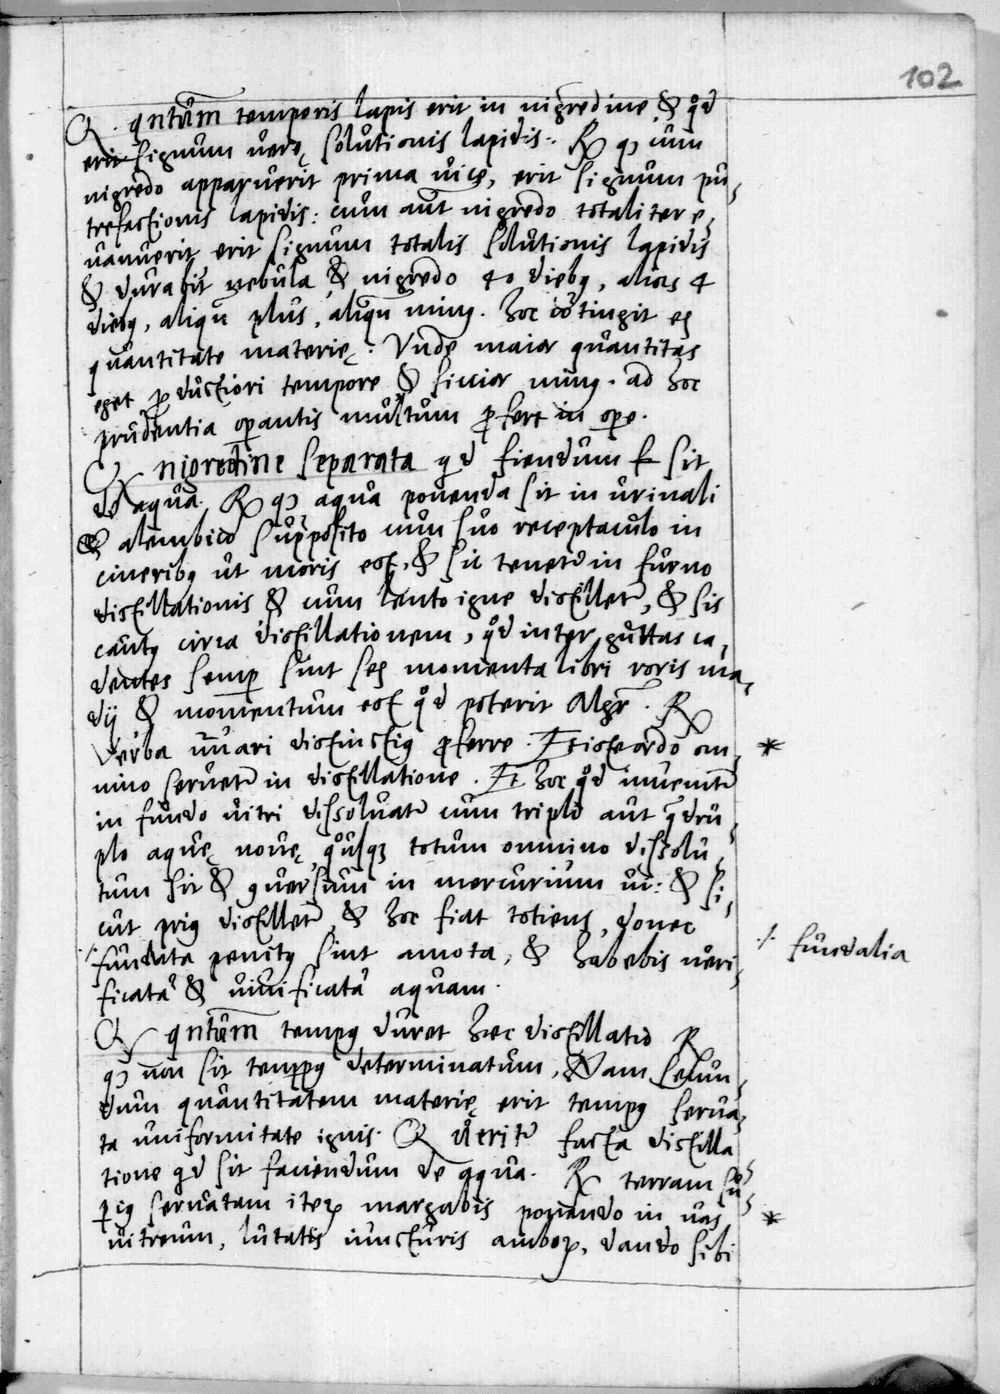 102
Q. qntũm temporis lapis erit in nigredine, & qd
erit signum verę solutionis lapidis: R q cum
nigredo apparuerit prima vice, erit signum pu,
trefactionis lapidis: cum aut nigredo totaliter e,
vanuerit erit signum totalis solutionis lapidis
& durabit nebula & nigredo 40 diebq, alias 4
diebq, aliqn plus, aliqn minq. hoc cõtingit ex
quantitate materię. Vnde maior quantitas
eget productiori tempore & siccior minq. ad hoc
prudentia operantis multum profert in ope.
Q nigredine separata qd fiendum sit
de aqua. R q aqua ponenda sit in urinali
& alembico supposito cum suo receptaculo in
cineribq ut moris est, & sic tenet in furno
distillationis & cum lento igne distillet, & sis
cautq circa distillationem, qd inter guttas ca,
dentes semp sint sex momenta libri roris ma,
dij & momentum est qd poterit Algr. R
verba nuari distinctiq proferre. Et isteordo om, *
nino servet in distillatione. Et hoc qd invenit
in fundo vitri dissolvat cum triplo aut qdru,
plo aquę novę, qusq totum omnino dissolu,
tum sit & 9versum in mercurium vi: & si,
cut priq distillet, & hoc fiat totiens, donec
·/· fundata penitq sint amota, & habebis veri,
·/· fundalia
ficatã & vivificatã aquam.
Q qntũm tempq duret hęc distillatio R
q non sit tempq determinatum, Nam secun,
dum quantitatem materię erit tempq serva,
ta uniformitate ignis. Q Querit facta distilla
tione qd sit faciendum de aqua. R terram su,
piq servatam iterq margabis ponendo in vas *
vitreum, lutatis iuncturis amborq, dando sibi